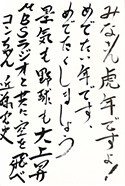 みなさん虎年ですよ!
めでたい年です。
めでたくしましょう
景気も野球も大上昇
MBSラジオと共に空を飛べ
コンちゃん 近藤光史